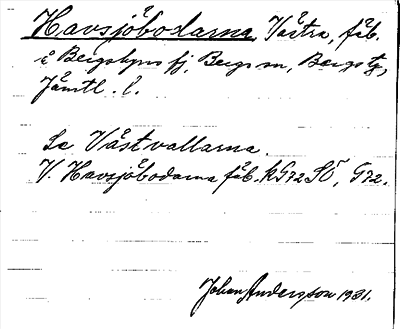 Havsjöbodarna, Västra, fäb.
i Bergsbyns fj, Bergs sn, Bergs tg,
Jämtl. l.
Se Västvallarna.
V. Havsjöbodarna fäb. k G72 SÖ, G72.
Johan Andersson 1931.